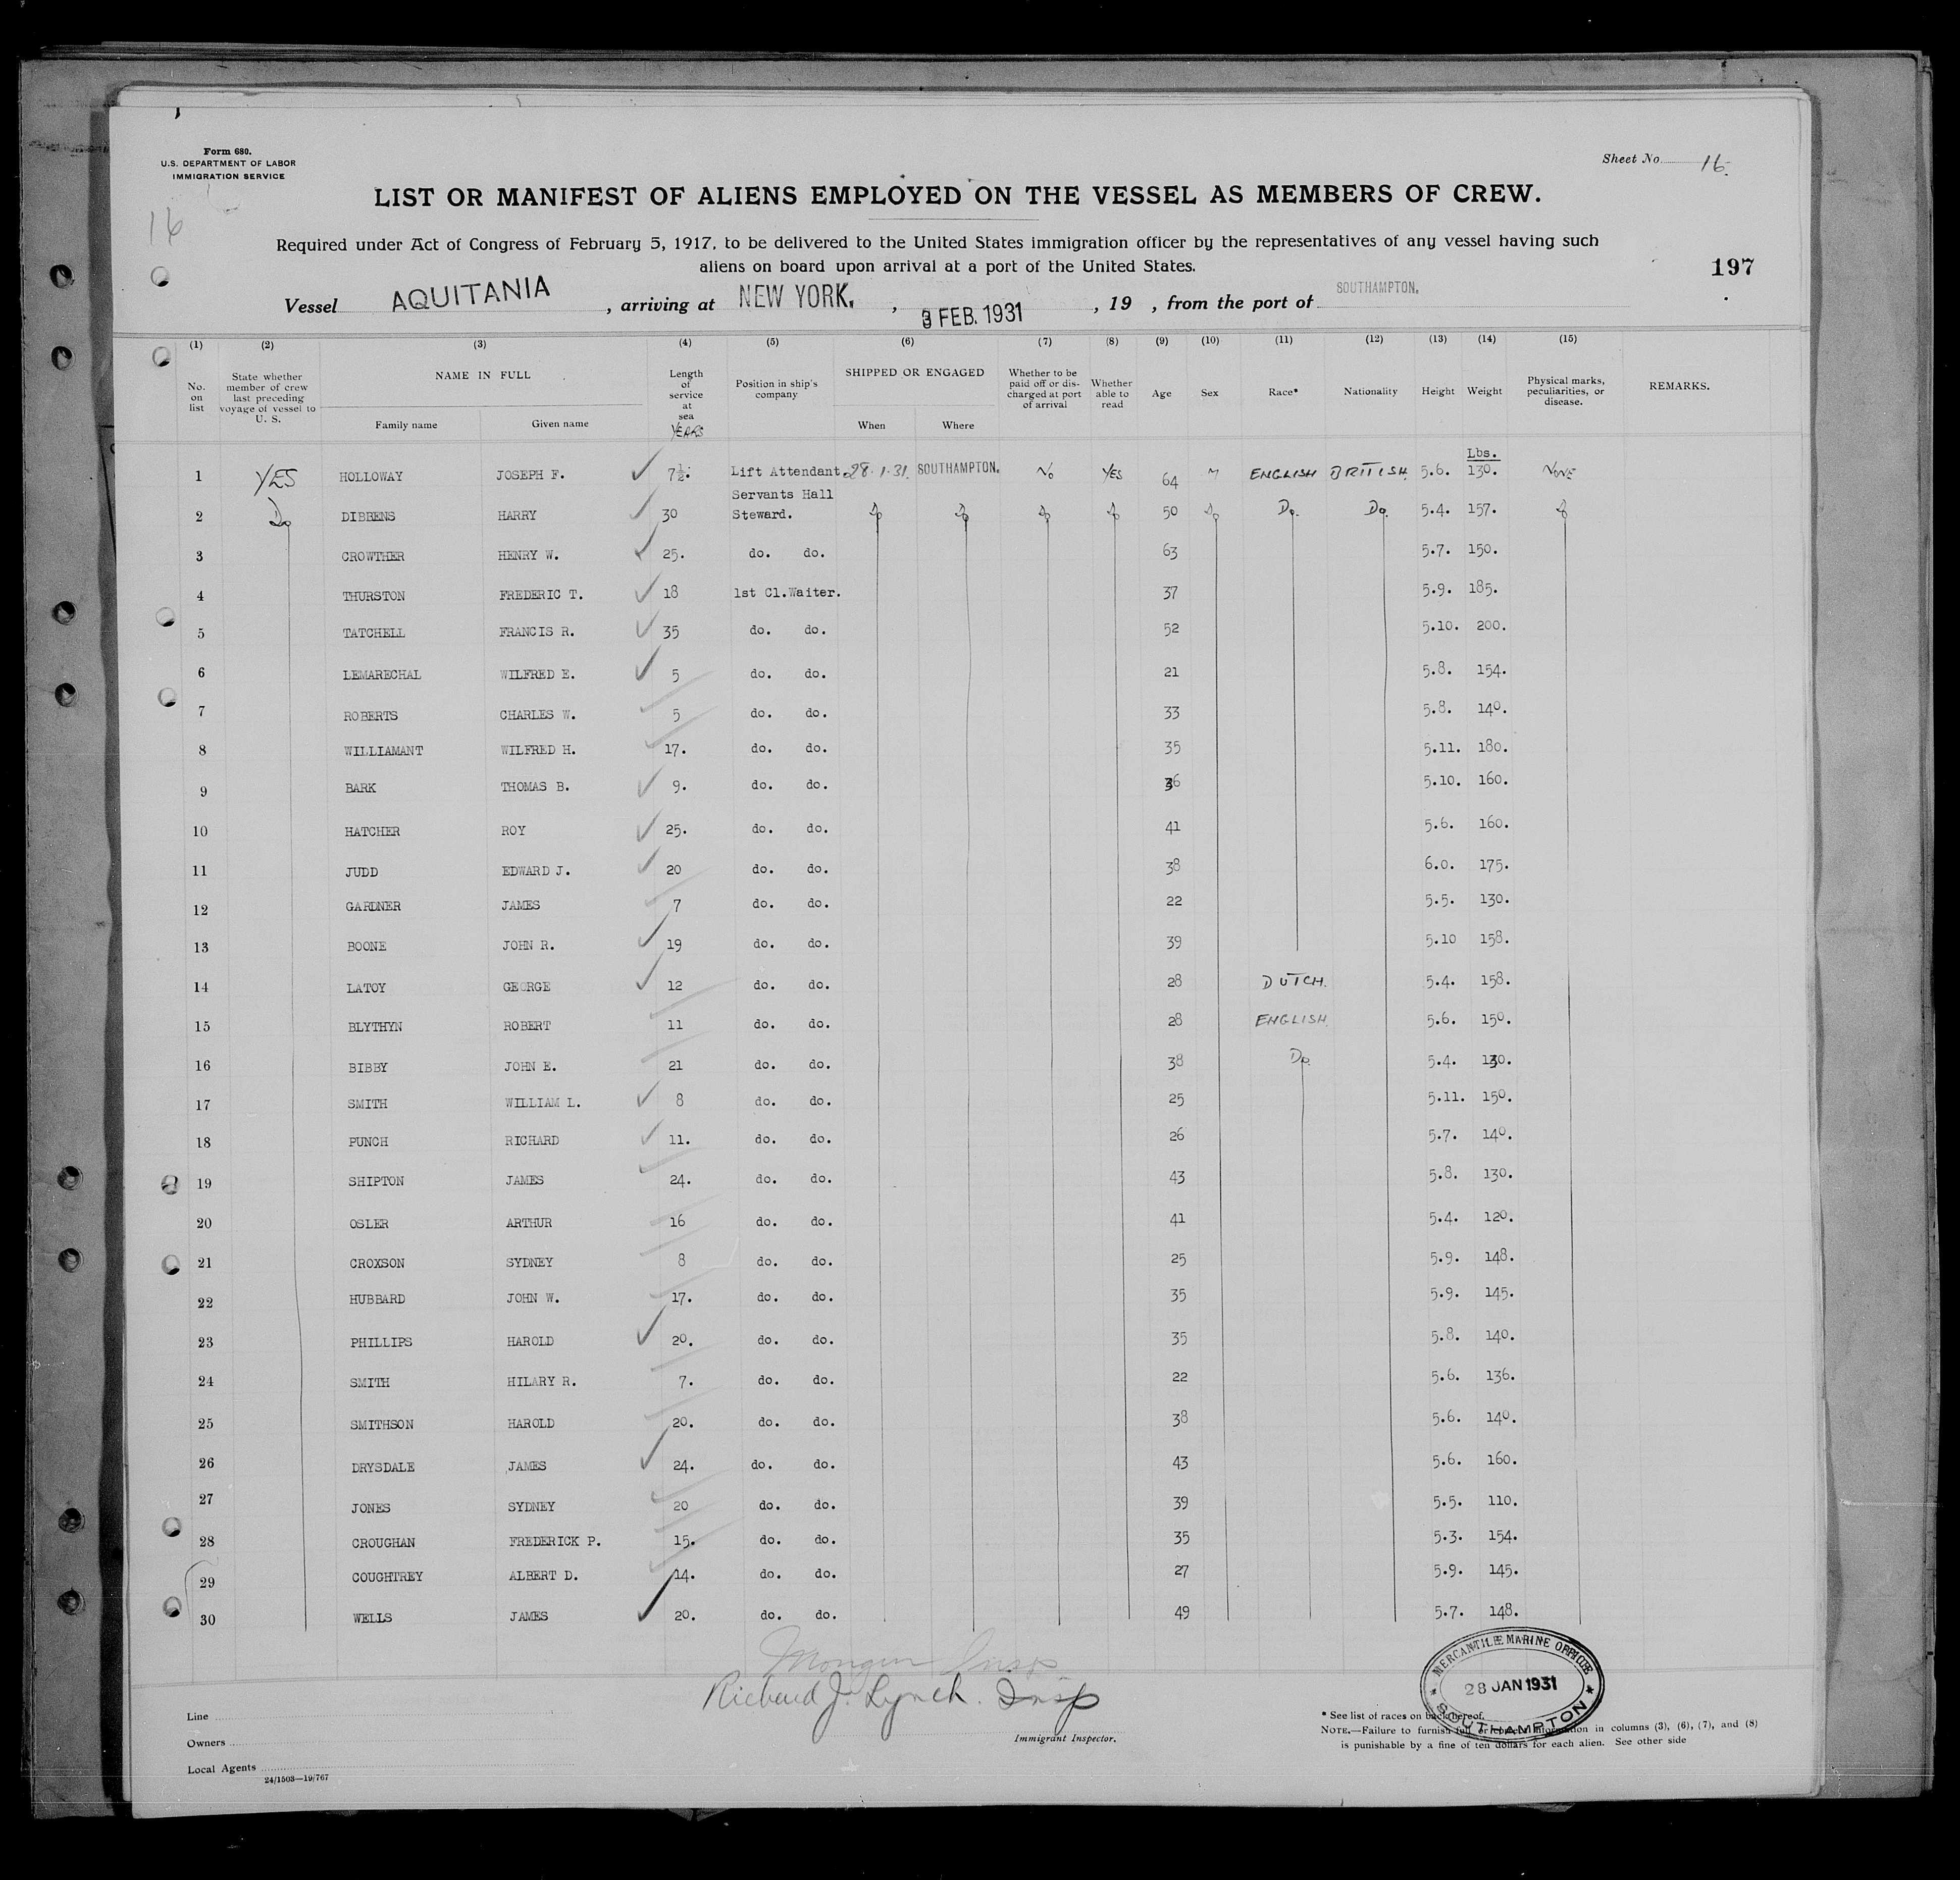 Form 680.
U.S. DEPARTMENT OF LABOR
IMMIGRATION SERVICE
Sheet No. 16.
16
LIST OR MANIFEST OF ALIENS EMPLOYED ON THE VESSEL AS MEMBERS OF CREW.
Required under Act of Congress of February 5, 1917, to be delivered to the United States immigration officer by the representatives of any vessel having such
aliens on board upon arrival at a port of the United States.
197
Vessel AQUITANIA , arriving at NEW YORK. , 3 FEB. 1931 , 19 , from the port of SOUTHAMPTON.
(1) (2) (3) (4) (5) (6) (7) (8) (9) (10) (11) (12) (13) (14) (15)
No. on list State whether member of crew last preceding voyage of vessel to U. S. NAME IN FULL Family name Given name Length of service at sea YEARS Position in ship's company SHIPPED OR ENGAGED When Where Whether to be paid off or discharged at port of arrival Whether able to read Age Sex Race* Nationality Height Weight Physical marks, peculiarities, or disease. REMARKS.
Lbs.
1 YES HOLLOWAY JOSEPH F. 7½. Lift Attendant 28.1.31. SOUTHAMPTON. No YES 64 M ENGLISH BRITISH. 5.6. 130. NONE
2 Do DIBBENS HARRY 30 Servants Hall Steward. Do Do Do Do 50 Do Do. Do. 5.4. 157. Do
3 CROWTHER HENRY W. 25. do. do. 63 5.7. 150.
4 THURSTON FREDERIC T. 18 1st Cl.Waiter. 37 5.9. 185.
5 TATCHELL FRANCIS R. 35 do. do. 52 5.10. 200.
6 LEMARECHAL WILFRED E. 5 do. do. 21 5.8. 154.
7 ROBERTS CHARLES W. 5 do. do. 33 5.8. 140.
8 WILLIAMANT WILFRED H. 17. do. do. 35 5.11. 180.
9 BARK THOMAS B. 9. do. do. 36 5.10. 160.
10 HATCHER ROY 25. do. do. 41 5.6. 160.
11 JUDD EDWARD J. 20 do. do. 38 6.0. 175.
12 GARDNER JAMES 7 do. do. 22 5.5. 130.
13 BOONE JOHN R. 19 do. do. 39 5.10 158.
14 LATOY GEORGE 12 do. do. 28 DUTCH. 5.4. 158.
15 BLYTHYN ROBERT 11 do. do. 28 ENGLISH. 5.6. 150.
16 BIBBY JOHN E. 21 do. do. 38 Do. 5.4. 130.
17 SMITH WILLIAM L. 8 do. do. 25 5.11. 150.
18 PUNCH RICHARD 11. do. do. 26 5.7. 140.
19 SHIPTON JAMES 24. do. do. 43 5.8. 130.
20 OSLER ARTHUR 16 do. do. 41 5.4. 120.
21 CROXSON SYDNEY 8 do. do. 25 5.9. 148.
22 HUBBARD JOHN W. 17. do. do. 35 5.9. 145.
23 PHILLIPS HAROLD 20. do. do. 35 5.8. 140.
24 SMITH HILARY R. 7. do. do. 22 5.6. 136.
25 SMITHSON HAROLD 20. do. do. 38 5.6. 140.
26 DRYSDALE JAMES 24. do. do. 43 5.6. 160.
27 JONES SYDNEY 20 do. do. 39 5.5. 110.
28 CROUGHAN FREDERICK P. 15. do. do. 35 5.3. 154.
29 COUGHTREY ALBERT D. 14. do. do. 27 5.9. 145.
30 WELLS JAMES 20. do. do. 49 5.7. 148.
MERCANTILE MARINE OFFICE
28 JAN 1931
SOUTHAMPTON
Insp
Richard J. Lynch. Insp
Immigrant Inspector.
Line
Owners
Local Agents
24/1503—19/767
* See list of races on back hereof.
NOTE.—Failure to furnish full or correct information in columns (3), (6), (7), and (8)
is punishable by a fine of ten dollars for each alien. See other side